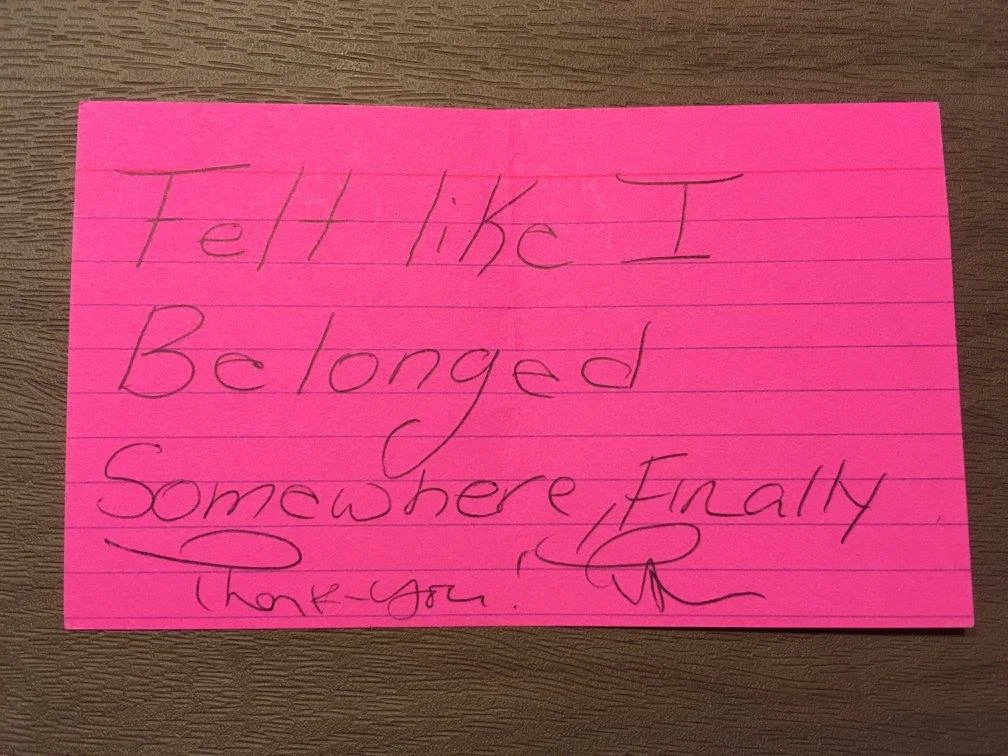 Felt like I
Belonged
Somewhere, Finally.
Thank-you!